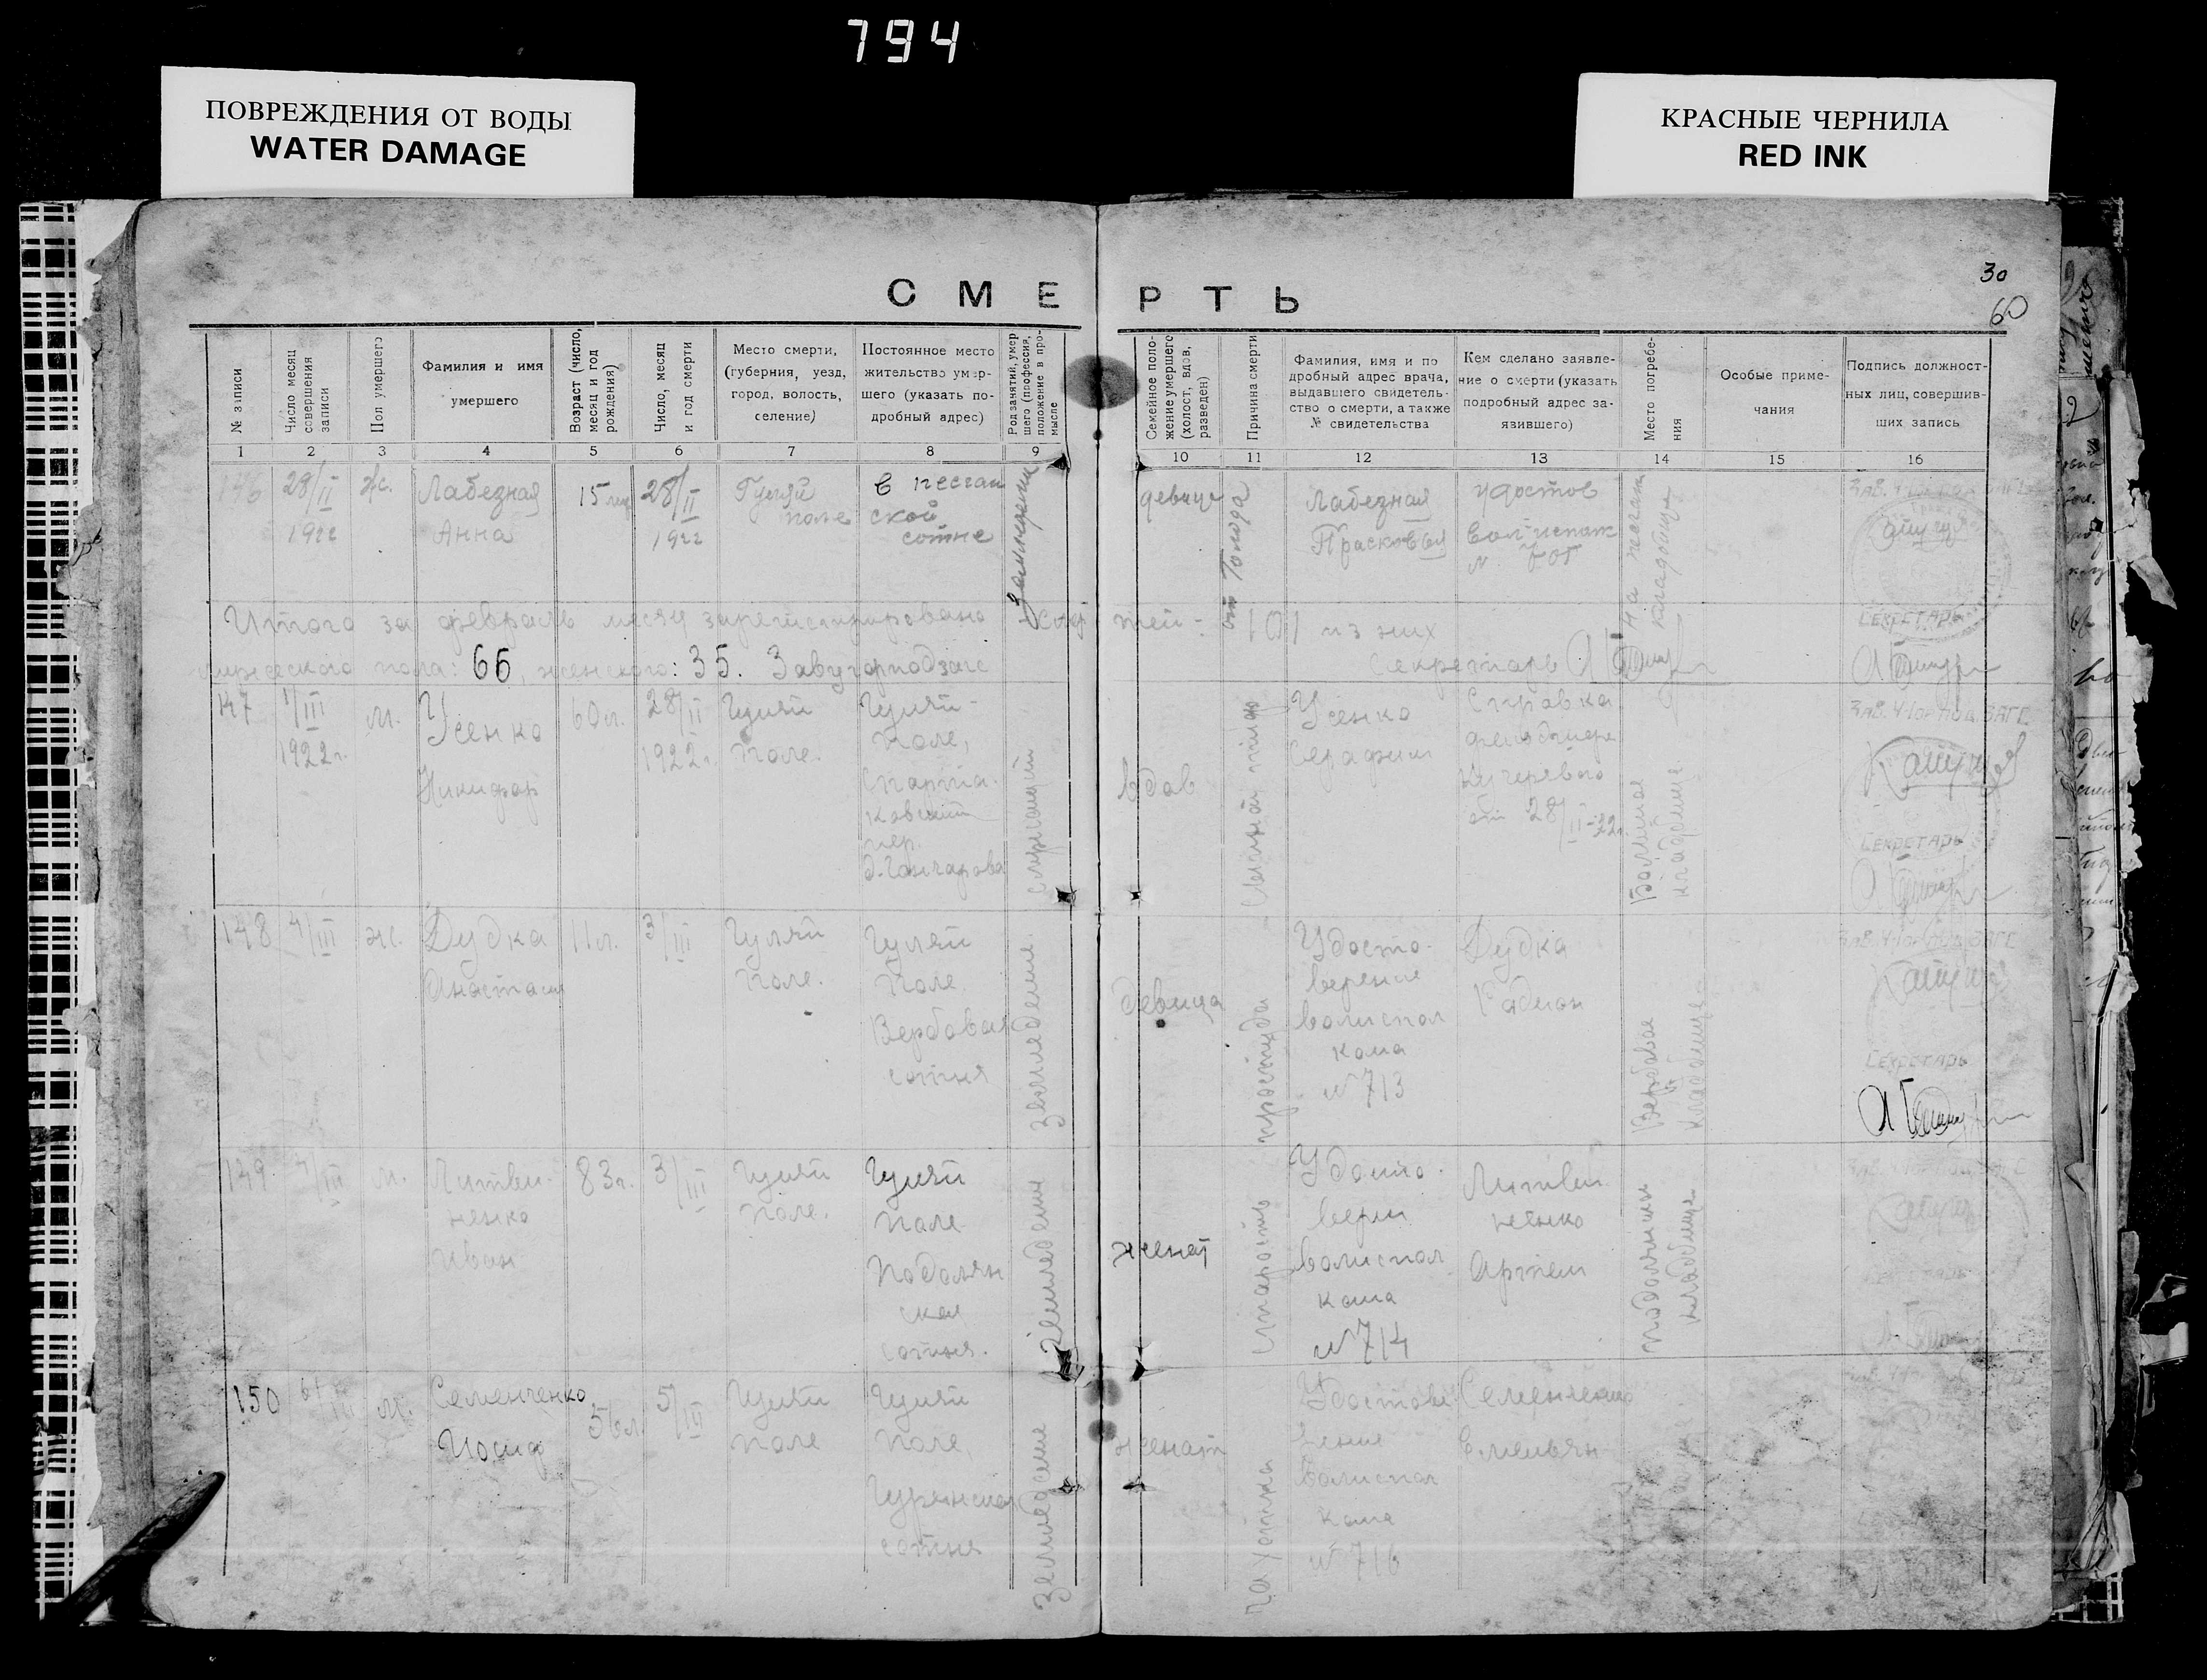 794
ПОВРЕЖДЕНИЯ ОТ ВОДЫ
WATER DAMAGE
КРАСНЫЕ ЧЕРНИЛА
RED INK
30
60
СМЕРТЬ
№ записи
Число месяц совершения записи
Пол умершего
Фамилия и имя
умершего
Возраст (число, месяц и год рождения)
Число, месяц и год смерти
Место смерти,
(губерния, уезд,
город, волость,
селение)
Постоянное место
жительство умер-
шего (указать по-
дробный адрес)
Род занятий, умер
шего (профессия,
положение в про-
мысле
Семейное поло-
жение умершего
(холост, вдов,
разведен)
Причина смерти
Фамилия, имя и по
дробный адрес врача,
выдавшего свидетель-
ство о смерти, а также
№ свидетельства
Кем сделано заявле-
ние о смерти (указать
подробный адрес за-
явившего)
Место погребе-
ния
Особые приме-
чания
Подпись должност-
ных лиц, совершив-
ших запись
1 2 3 4 5 6 7 8 9 10 11 12 13 14 15 16
146
28/II
1922
ж.
Лабезная
Анна
15 лет
28/II
1922
Гуляй
поле
В песчан
ской
сотне
девица
Лабезная
Прасковья
удостов
№ 705
кладбище
СЕКРЕТАРЬ
Итого за февраль месяц зарегистрировано смер тей - 101 из них
мужеского пола: 66, женского: 35.
Секретарь
147
1/III
1922 г.
м.
Усенко
Никифор
60 л.
28/II
1922 г.
Гуляй
поле.
Гуляй-
поле,
Спарта-
ковский
пер.
д. Гончарова
вдов
Усенко
Серафим
Справка
фельдшера
Кучерявого
от 28/II-22
кладбище
ЗАВ. ЗАГС
СЕКРЕТАРЬ
148
4/III
ж.
Дудка
Анастасия
11 л.
3/III
Гуляй
поле.
Гуляй
поле.
Вербовая
сотня
земледелие.
девица
простуда
Удосто-
верение
волиспол
кома
№ 713
Дудка
Родион
Вербовое
кладбище
СЕКРЕТАРЬ
149
4/III
м.
Литви-
ненко
Иван
83 г.
3/III
Гуляй
поле.
Гуляй
поле
Подолян
ская
сотня.
земледелия
женат
старость
Удосто-
верен
волиспол
кома
№ 714
Литви
ненко
Артем
кладбище
150
6/III
м.
Семенченко
Иосиф
56 л.
5/III
Гуляй
поле
Гуляй
поле
Гурянская
сотня
земледелие
женат
чахотка
Удостове
рение
волиспол
кома
№ 716
Семенченко
Емельян